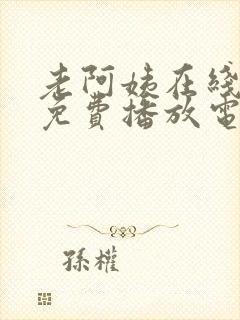 老阿姨在綫
免費播放電
孫權